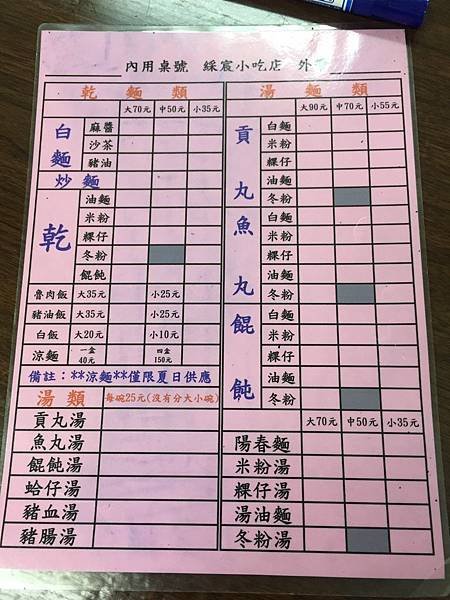 內用桌號 綵宸小吃店 外
乾麵類
大70元 中50元 小35元
白麵
麻醬
沙茶
豬油
炒麵
乾
油麵
米粉
粿仔
冬粉
餛飩
魯肉飯 大35元 小25元
豬油飯 大35元 小25元
白飯 大20元 小10元
涼麵 一盒40元 四盒150元
備註：**涼麵**僅限夏日供應
湯類 每碗25元(沒有分大小碗)
貢丸湯
魚丸湯
餛飩湯
蛤仔湯
豬血湯
豬腸湯
湯麵類
大90元 中70元 小55元
貢丸魚丸餛飩
白麵
米粉
粿仔
油麵
冬粉
白麵
米粉
粿仔
油麵
冬粉
白麵
米粉
粿仔
油麵
冬粉
大70元 中50元 小35元
陽春麵
米粉湯
粿仔湯
湯油麵
冬粉湯